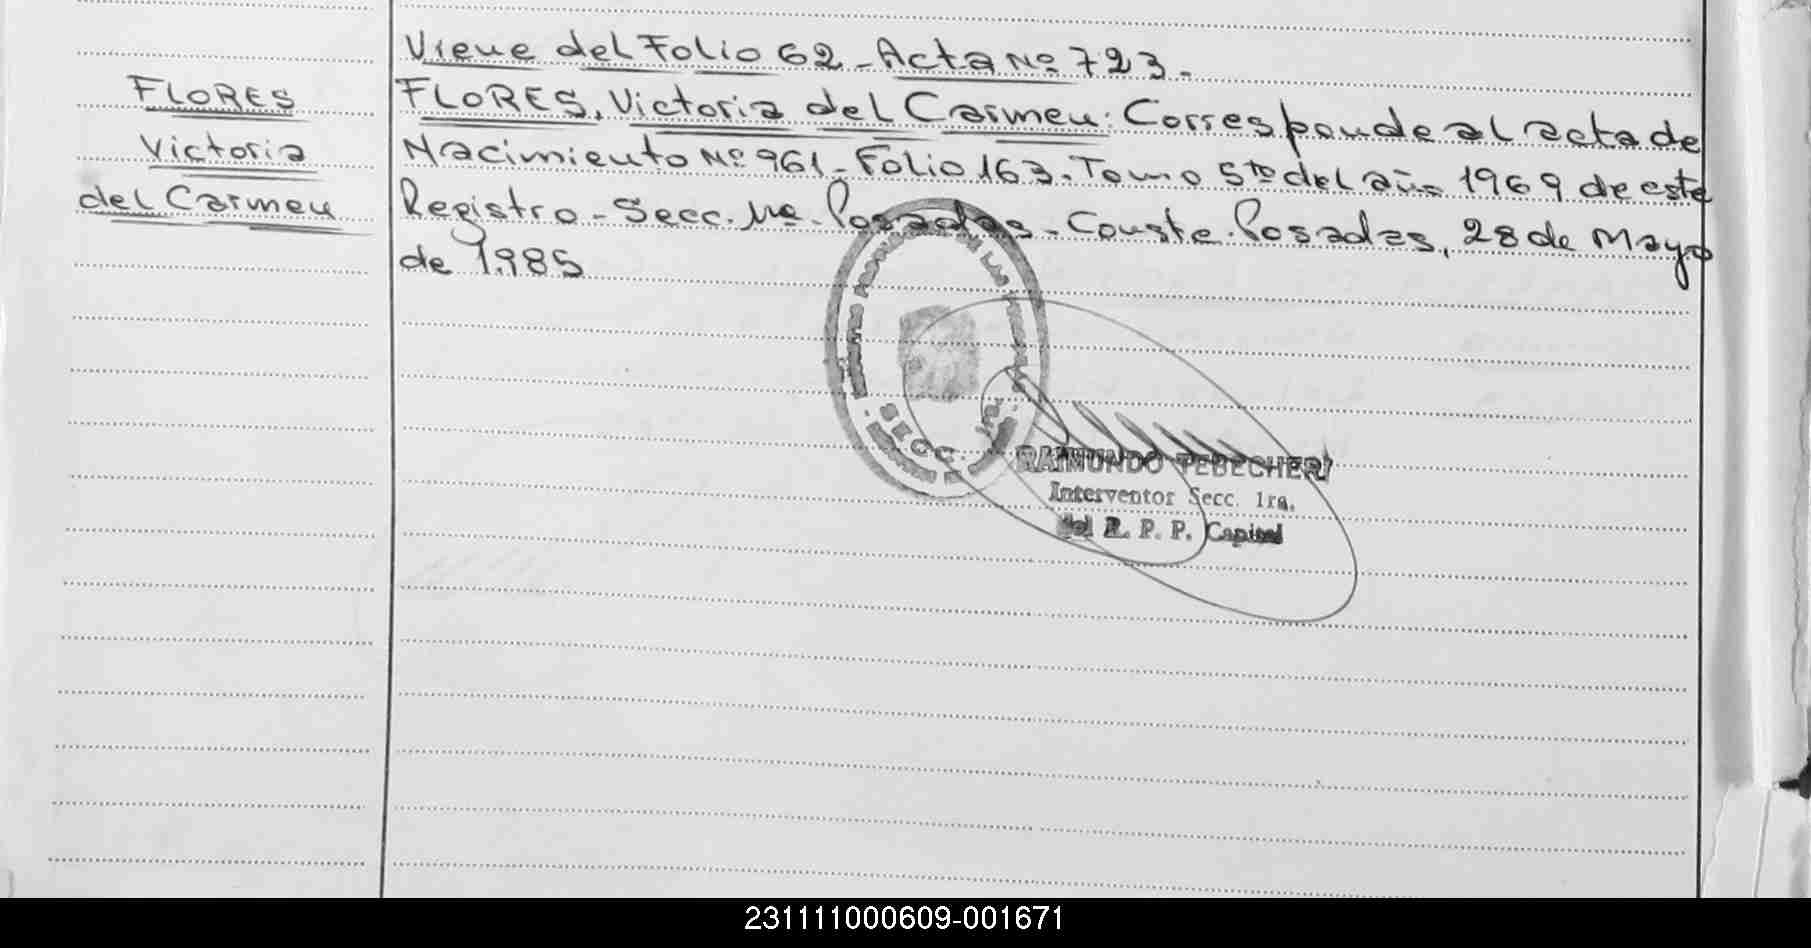 Viene del Folio 62 - Acta Nº 723.-
FLORES
Victoria
del Carmen
FLORES, Victoria del Carmen: Corresponde al acta de
Nacimiento Nº 961 - Folio 163. Tomo 5to del año 1969 de este
Registro - Secc. 1ra. Posadas - Conste. Posadas, 28 de Mayo
de 1.985
SECC. 1ra.
RAIMUNDO TEBECHERI
Interventor Secc. 1ra.
del R. P. P. Capital
231111000609-001671